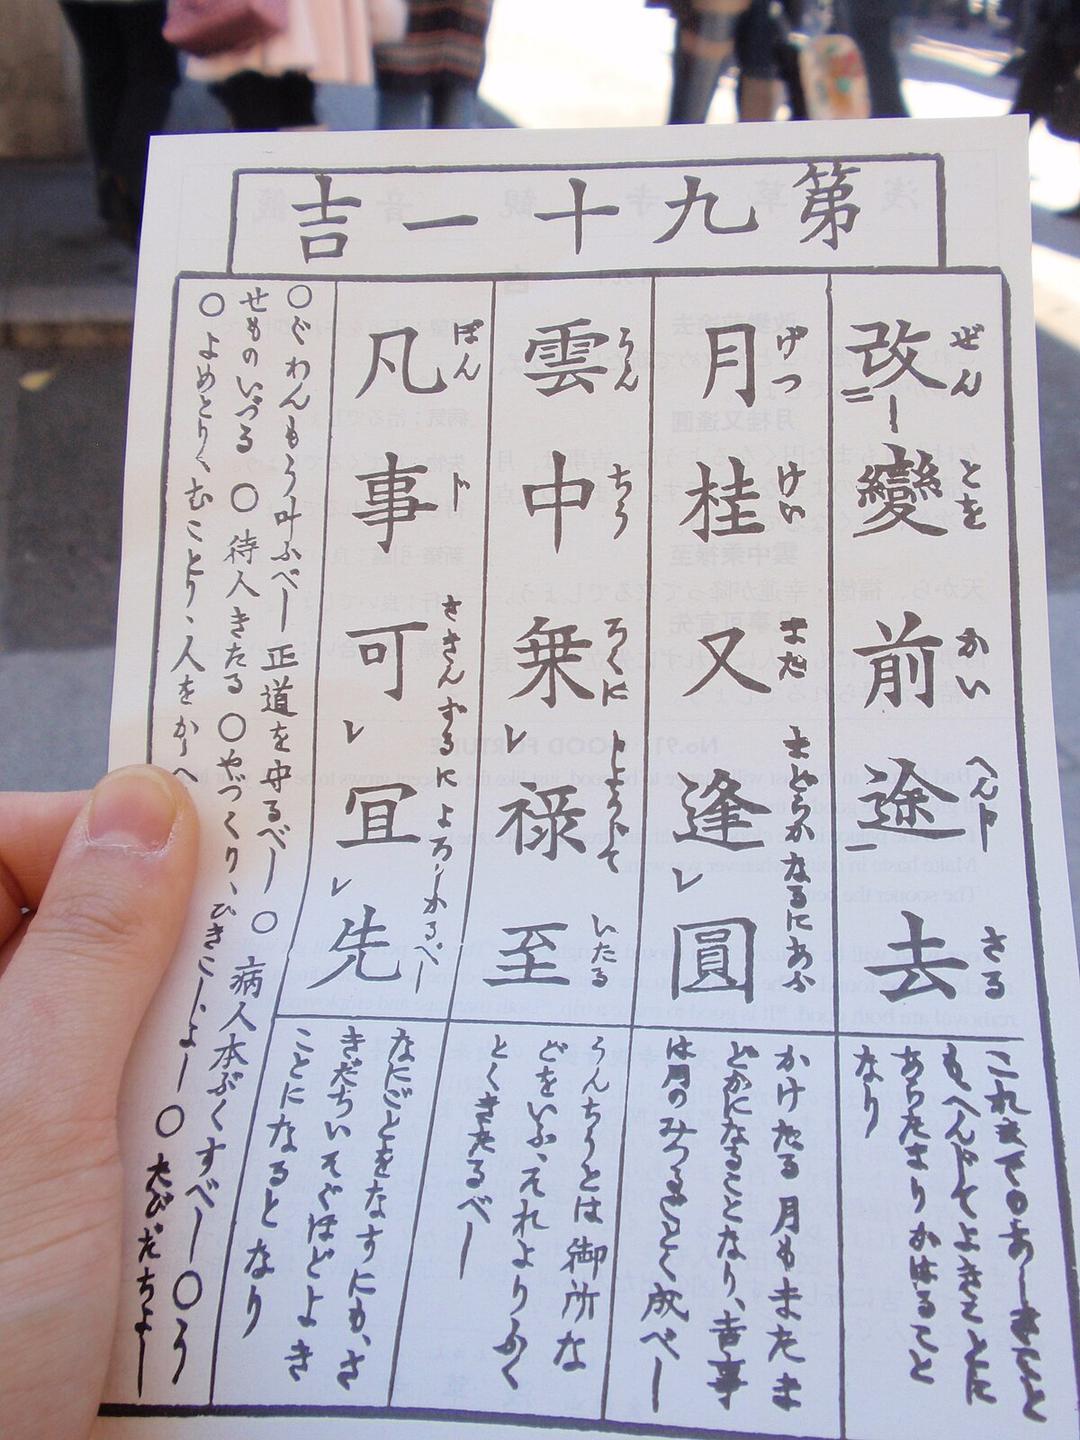 第九十一吉
ぜんとを かい へんじ さる
改變前途去
これまでのあしきこと
もへんじてよきことに
あらたまりかはること
なり
げつ けい また まどかなるにあふ
月桂又逢圓
かけたる月もまたま
どかになることなり、吉事
は月のみつるごとく成べし
うん ちう ろくに じようじて いたる
雲中乗禄至
うんちうとは御所な
どをいふ、それよりふく
とくきたるべし
ぼん じ さきんずるによろしかるべし
凡事可冝先
なにごとをなすにも、さ
きだちいそぐほどよき
ことになるとなり
○ぐわんもう叶ふべし 正道を守るべし ○病人本ぶくすべし ○う
せものいづる ○待人きたる ○やづくり、ひきこしよし ○たびだちよし
○よめとり、むことり、人をか